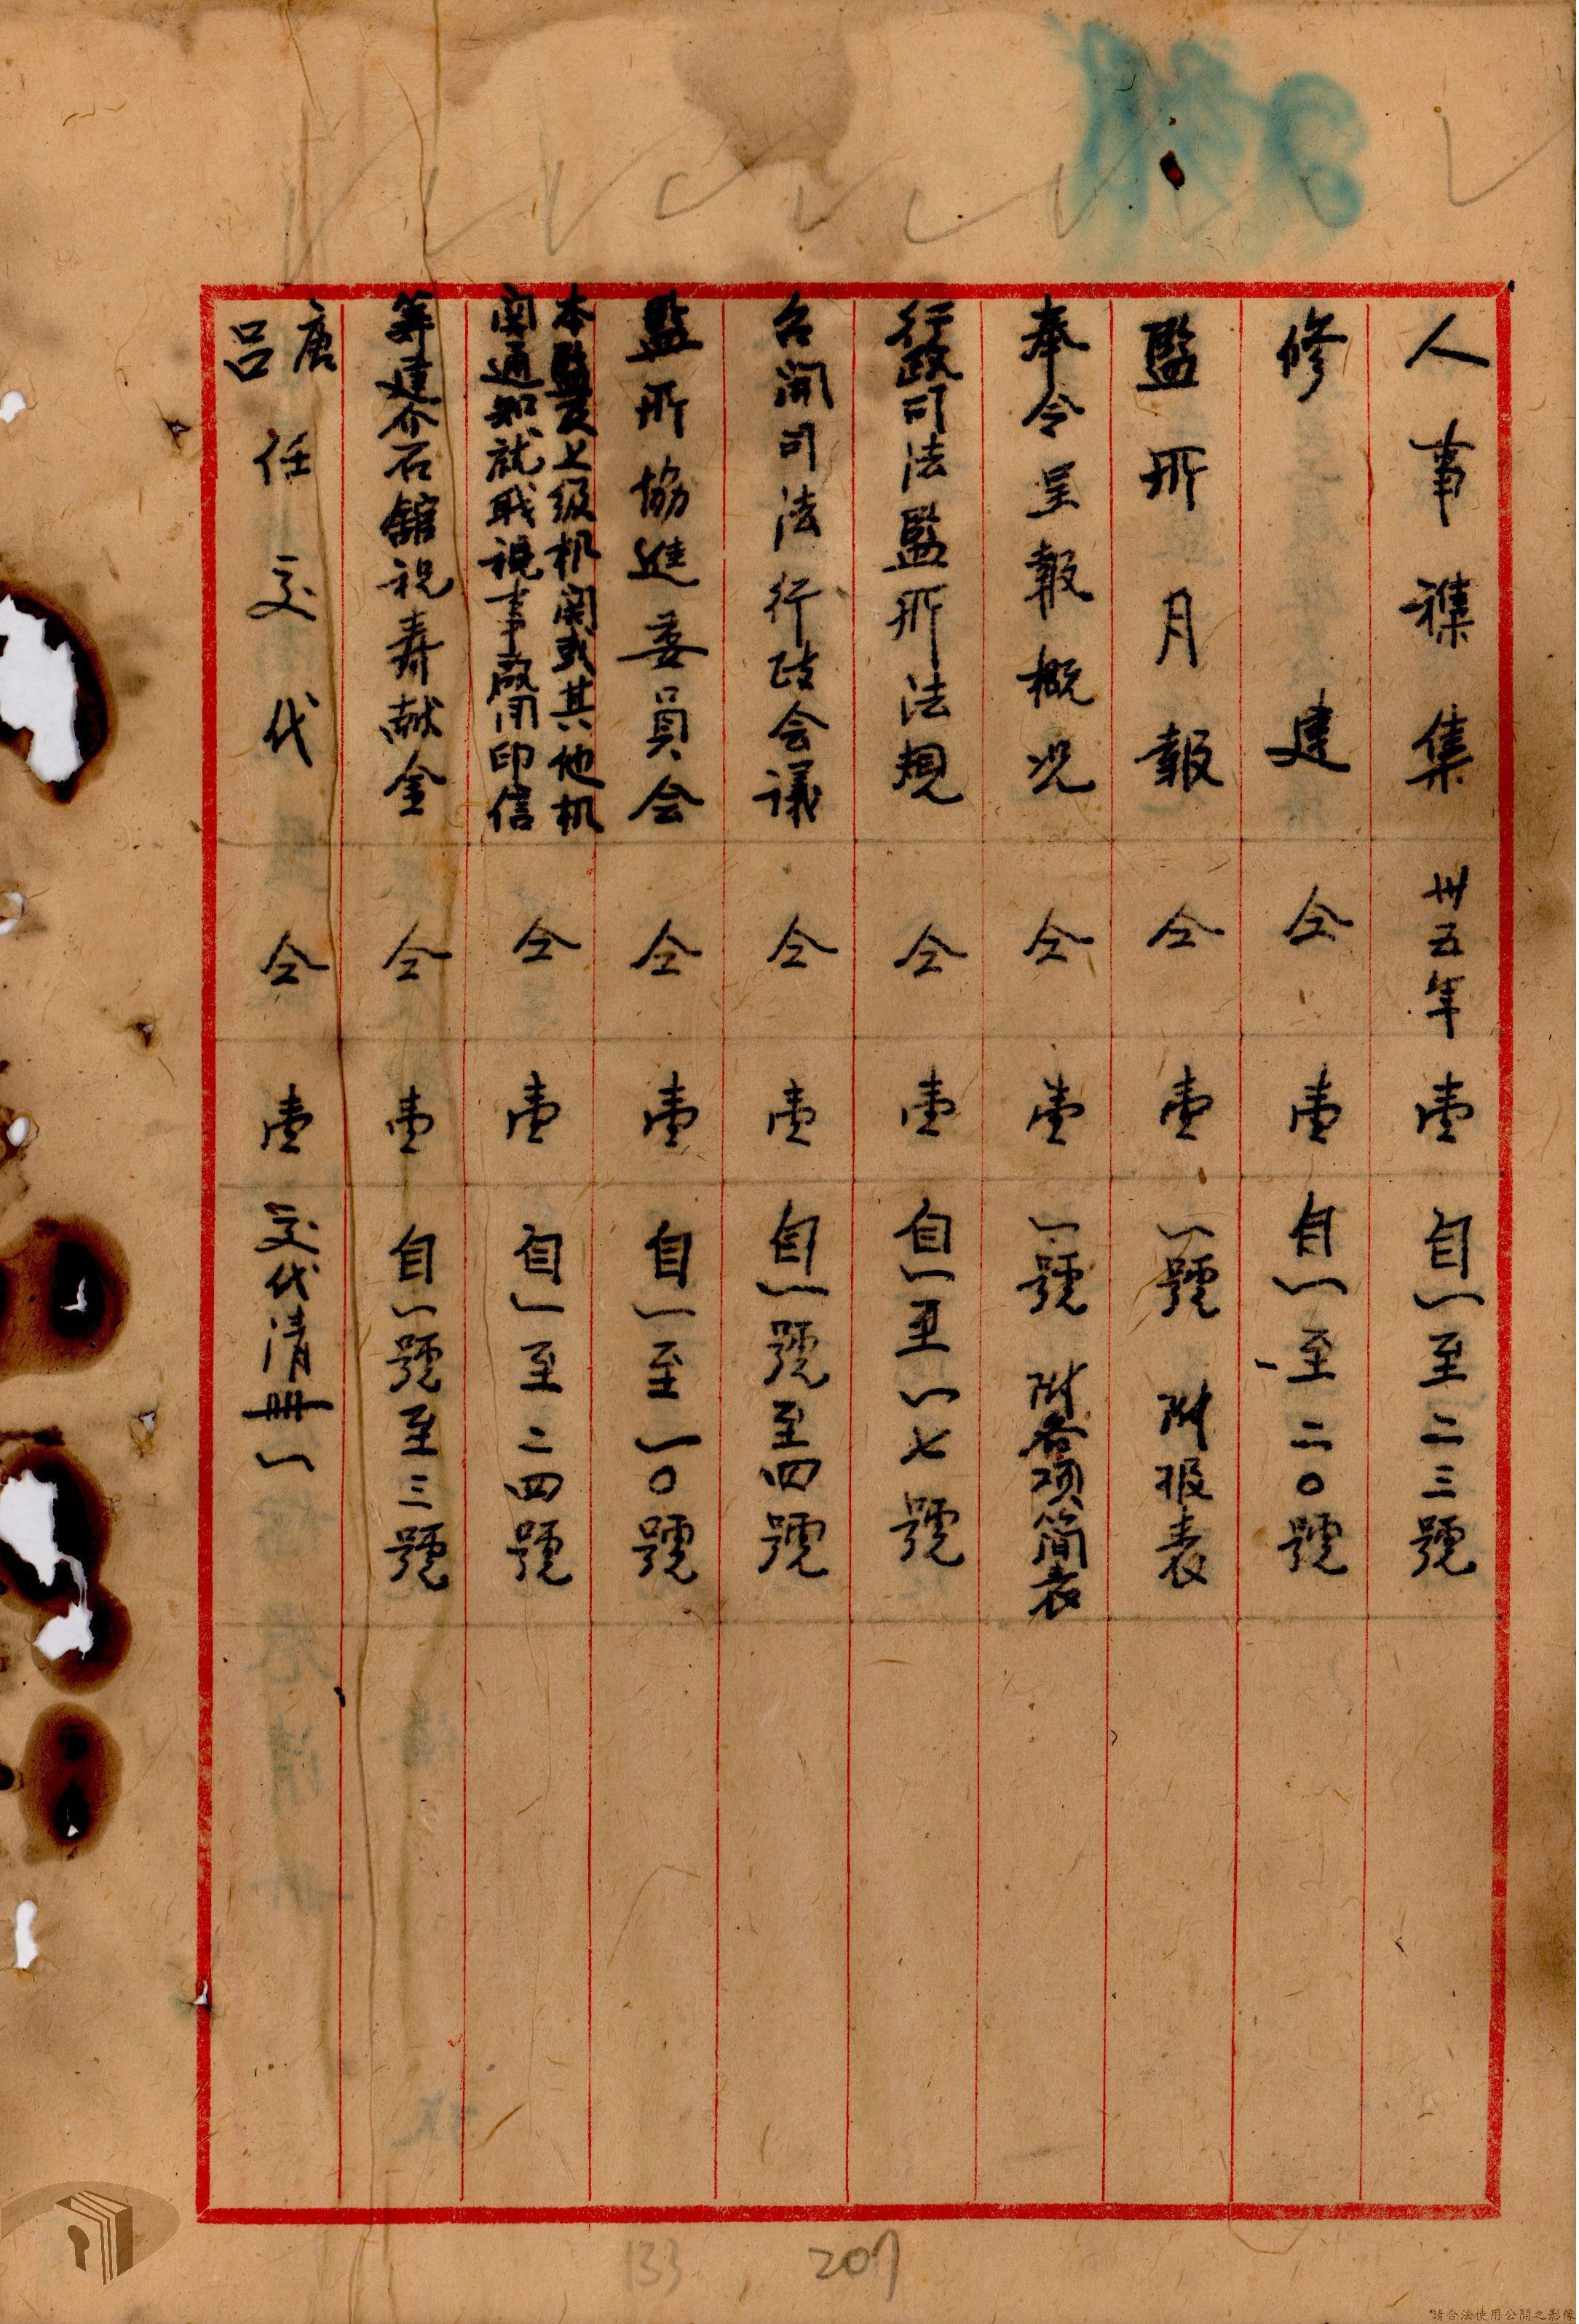 人事雜集 卅五年 壹 自一至二三號
修建 仝 壹 自一至二〇號
監所月報 仝 壹 一號 附报表
奉令呈報概况 仝 壹 一號 附各项简表
行政司法監所法規 仝 壹 自一至一七號
召開司法行政会議 仝 壹 自一號至四號
監所協進委員会 仝 壹 自一至一〇號
本監及上级机関或其他机
関通知就职視事啟用印信 仝 壹 自一至二四號
筹建介石舘祝寿献金 仝 壹 自一號至三號
唐
吕
任交代 仝 壹 交代清冊一
133
207
請合法使用公開之影像